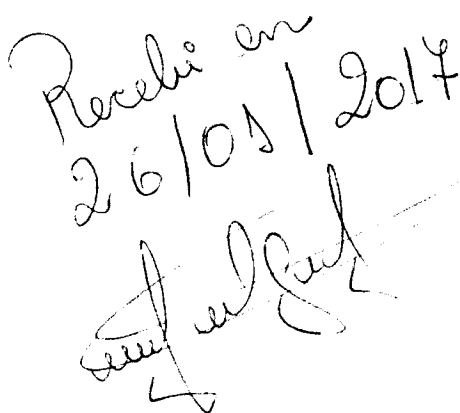 Recebi em
26/01/2017